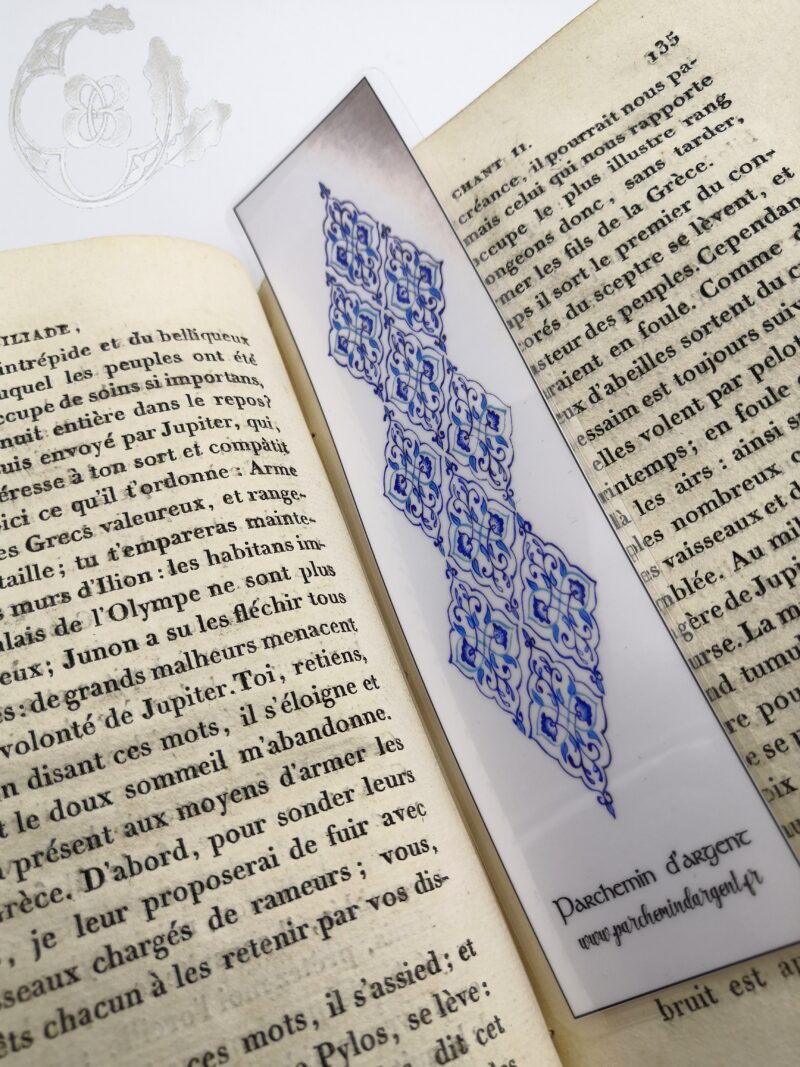 ILIADE,
intrépide et du belliqueux
les peuples ont été
de soins si importans,
nuit entière dans le repos?
envoyé par Jupiter, qui,
à ton sort et compâtit
ce qu'il t'ordonne : Arme
es Grecs valeureux, et range-
taille ; tu t'empareras mainte-
murs d'Ilion : les habitans im-
alais de l'Olympe ne sont plus
eux ; Junon a su les fléchir tous
: de grands malheurs menacent
volonté de Jupiter. Toi, retiens,
n disant ces mots, il s'éloigne et
t le doux sommeil m'abandonne.
présent aux moyens d'armer les
rèce. D'abord, pour sonder leurs
, je leur proposerai de fuir avec
sseaux chargés de rameurs ; vous,
êts chacun à les retenir par vos dis-
ces mots, il s'assied ; et
Pylos, se lève :
dit cet
135
CHANT II.
créance, il pourrait nous pa-
mais celui qui nous rapporte
occupe le plus illustre rang
ongeons donc, sans tarder,
rmer les fils de la Grèce.
ps il sort le premier du con-
orés du sceptre se lèvent, et
asteur des peuples. Cependan
raient en foule. Comme d
eux d'abeilles sortent du c
essaim est toujours suiv
elles volent par pelot
rintemps ; en foule
là les airs : ainsi s
les nombreux
es vaisseaux et d
blée. Au mil
gère de Jupi
urse. La m
nd tumul
re pou
e se p
oix
bruit est ap
Parchemin d'argent
www.parchemindargent.fr